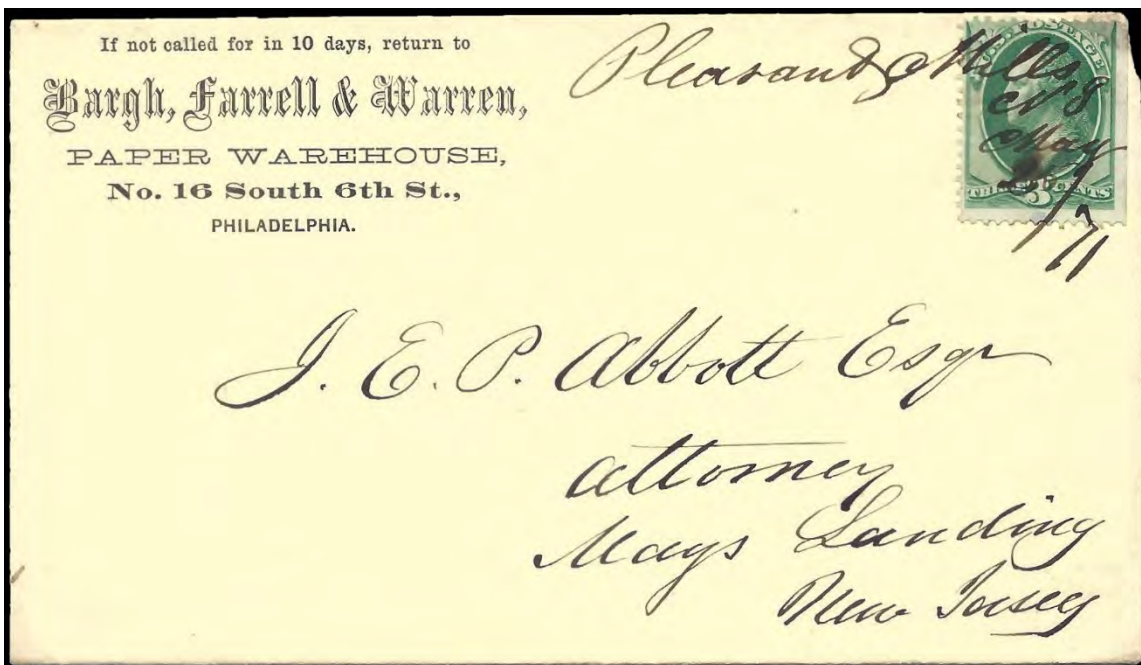 If not called for in 10 days, return to
Bargh, Farrell & Warren,
PAPER WAREHOUSE,
No. 16 South 6th St.,
PHILADELPHIA.
Pleasant Mills
N J
May
/71
U.S. POSTAGE
THREE 3 CENTS
J. E. P. Abbott Esqr
Attorney
Mays Landing
New Jersey